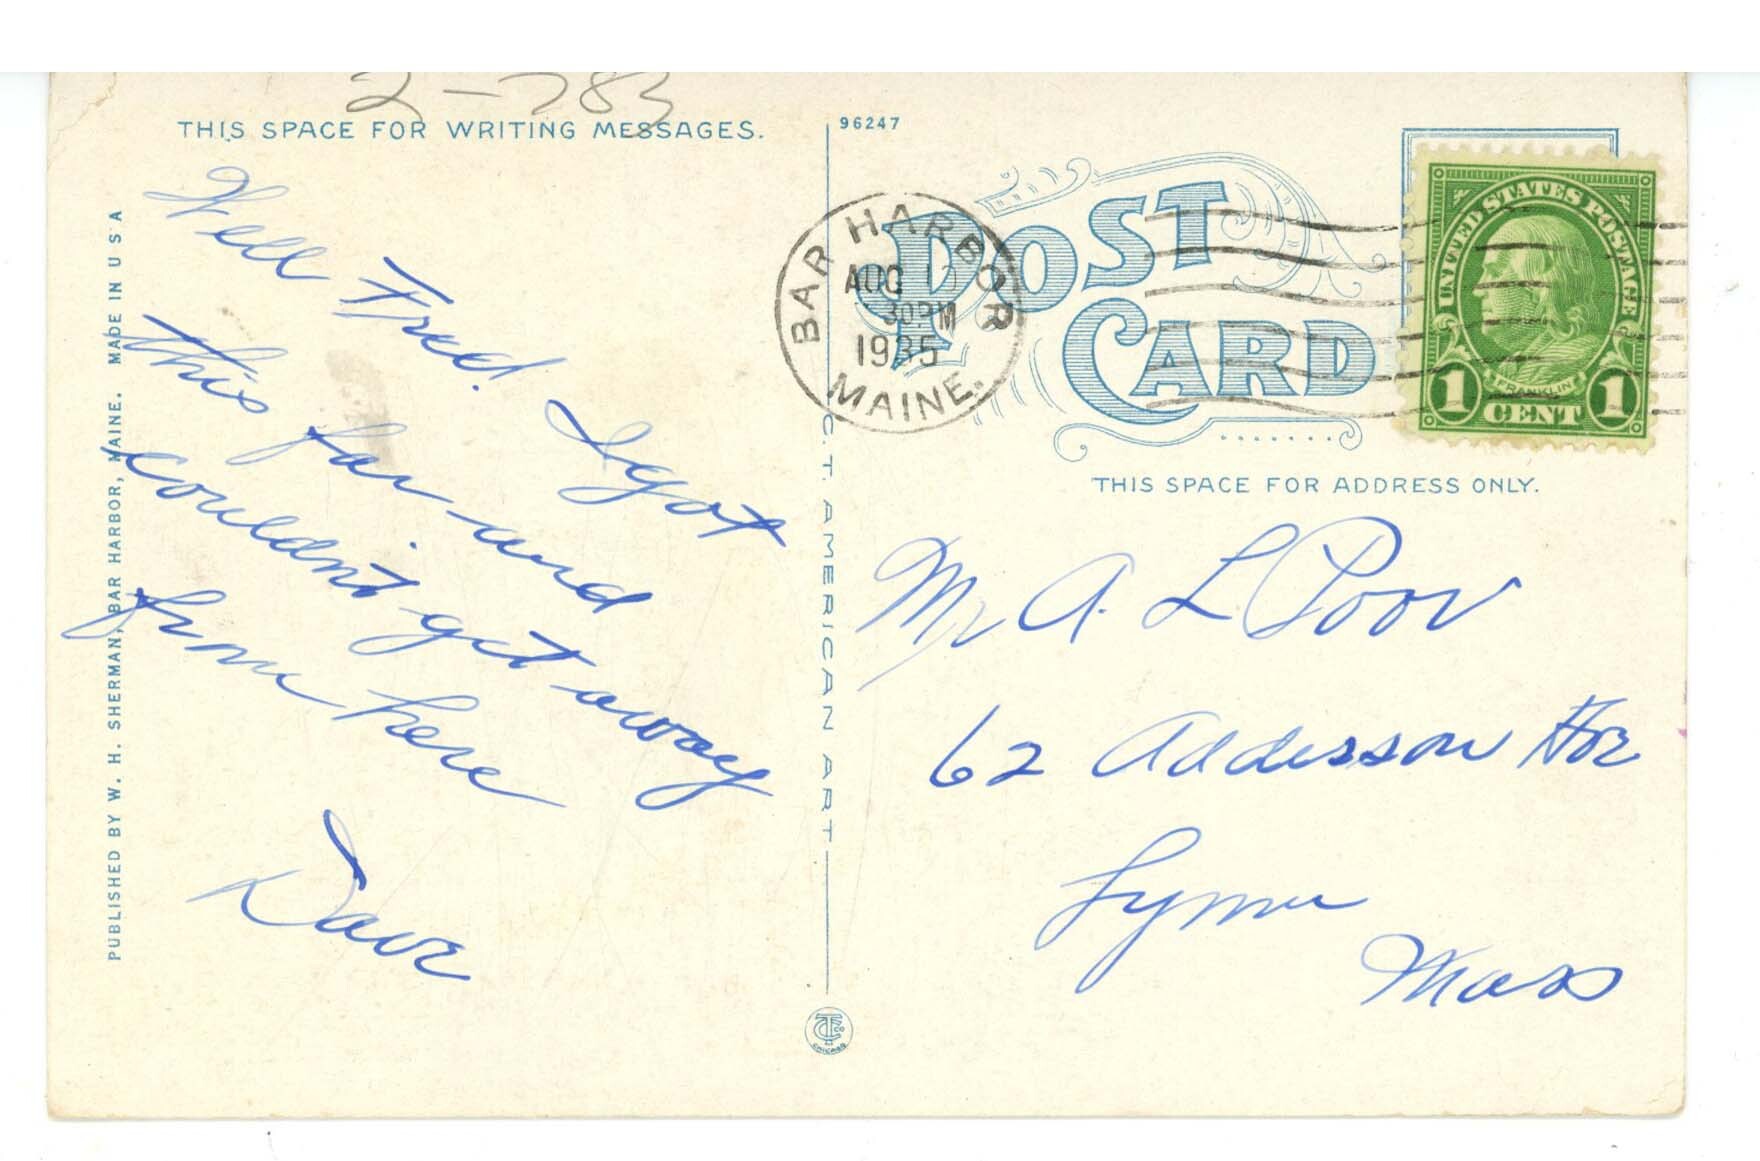 2-783
THIS SPACE FOR WRITING MESSAGES.
Well Fred. I got
this far and
couldn't get away
from here
Dave
PUBLISHED BY W. H. SHERMAN, BAR HARBOR, MAINE. MADE IN U S A
C. T. AMERICAN ART
96247
POST
CARD
BAR HARBOR
AUG
30 PM
1935
MAINE.
UNITED STATES POSTAGE
FRANKLIN
1 CENT 1
THIS SPACE FOR ADDRESS ONLY.
Mr A. L Poor
62 Addisson
Lynn
Mass
CHICAGO